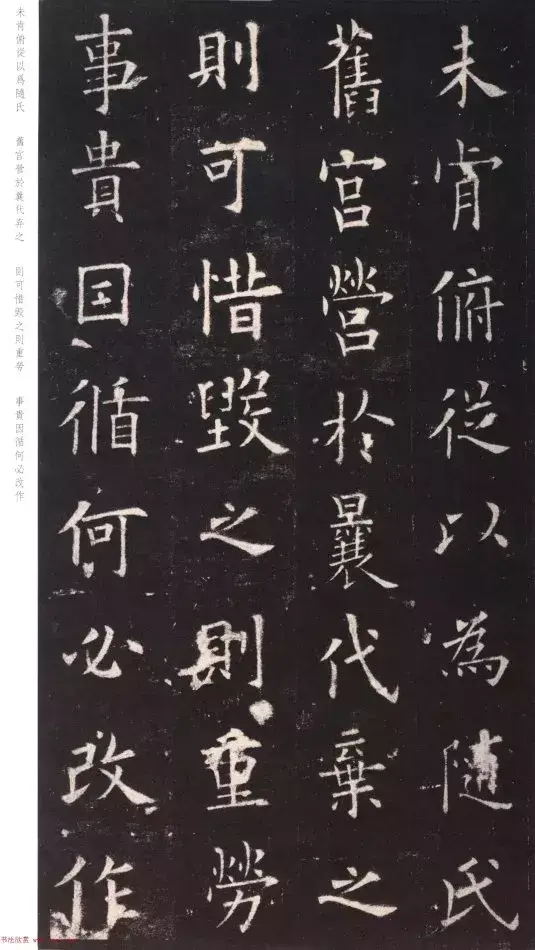 未肯俯從以為随氏
舊宫營於曩代棄之
則可惜毀之則重勞
事貴因循何必改作
未肯俯從以爲随氏 舊宫營於曩代弃之 則可惜毀之則重勞 事貴因循何必改作
书法欣赏